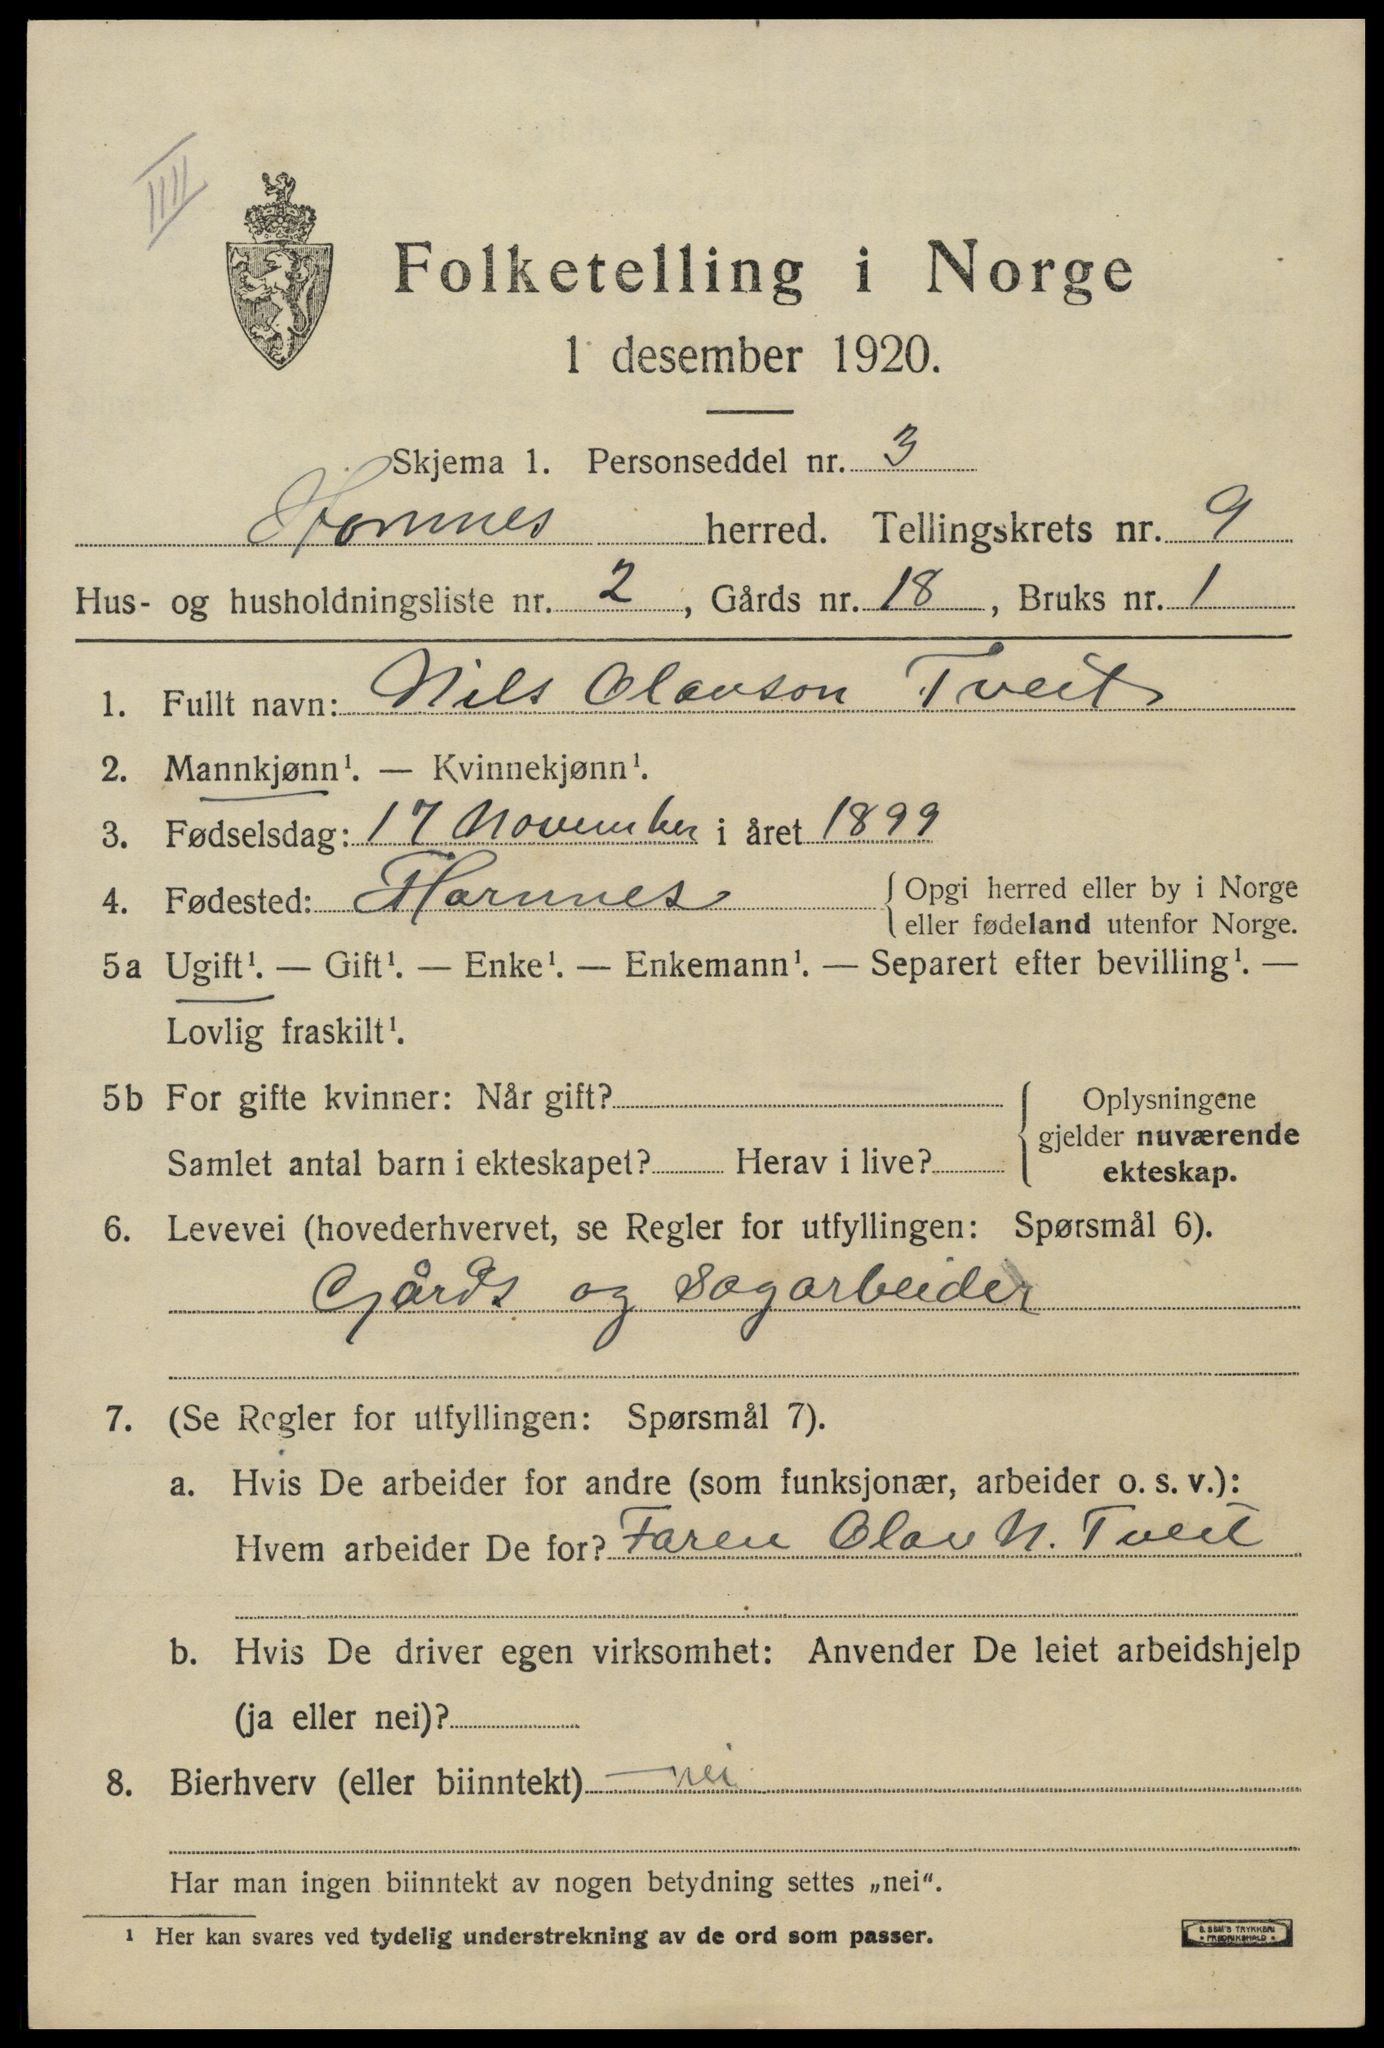 IIII
Folketelling i Norge
1 desember 1920.
Skjema 1. Personseddel nr. 3
Hornnes herred. Tellingskrets nr. 9
Hus- og husholdningsliste nr. 2, Gårds nr. 18, Bruks nr. 1
1. Fullt navn: Nils Olavson Tveit
2. Mannkjønn¹. — Kvinnekjønn¹.
3. Fødselsdag: 17 November i året 1899
4. Fødested: Hornnes {Opgi herred eller by i Norge
eller fødeland utenfor Norge.
5a Ugift¹. — Gift¹. — Enke¹. — Enkemann¹. — Separert efter bevilling¹. —
Lovlig fraskilt¹.
5b For gifte kvinner: Når gift? Oplysningene
gjelder nuværende
Samlet antal barn i ekteskapet? Herav i live? ekteskap.
6. Levevei (hovederhvervet, se Regler for utfyllingen: Spørsmål 6).
Gjårds og Sagarbeider
7. (Se Regler for utfyllingen: Spørsmål 7).
a. Hvis De arbeider for andre (som funksjonær, arbeider o. s. v.):
Hvem arbeider De for? Faren Olav N. Tveit
b. Hvis De driver egen virksomhet: Anvender De leiet arbeidshjelp
(ja eller nei)?
8. Bierhverv (eller biinntekt) nei
Har man ingen biinntekt av nogen betydning settes „nei“.
¹ Her kan svares ved tydelig understrekning av de ord som passer.
E. SEM'S TRYKKERI
• FREDRIKSHALD •